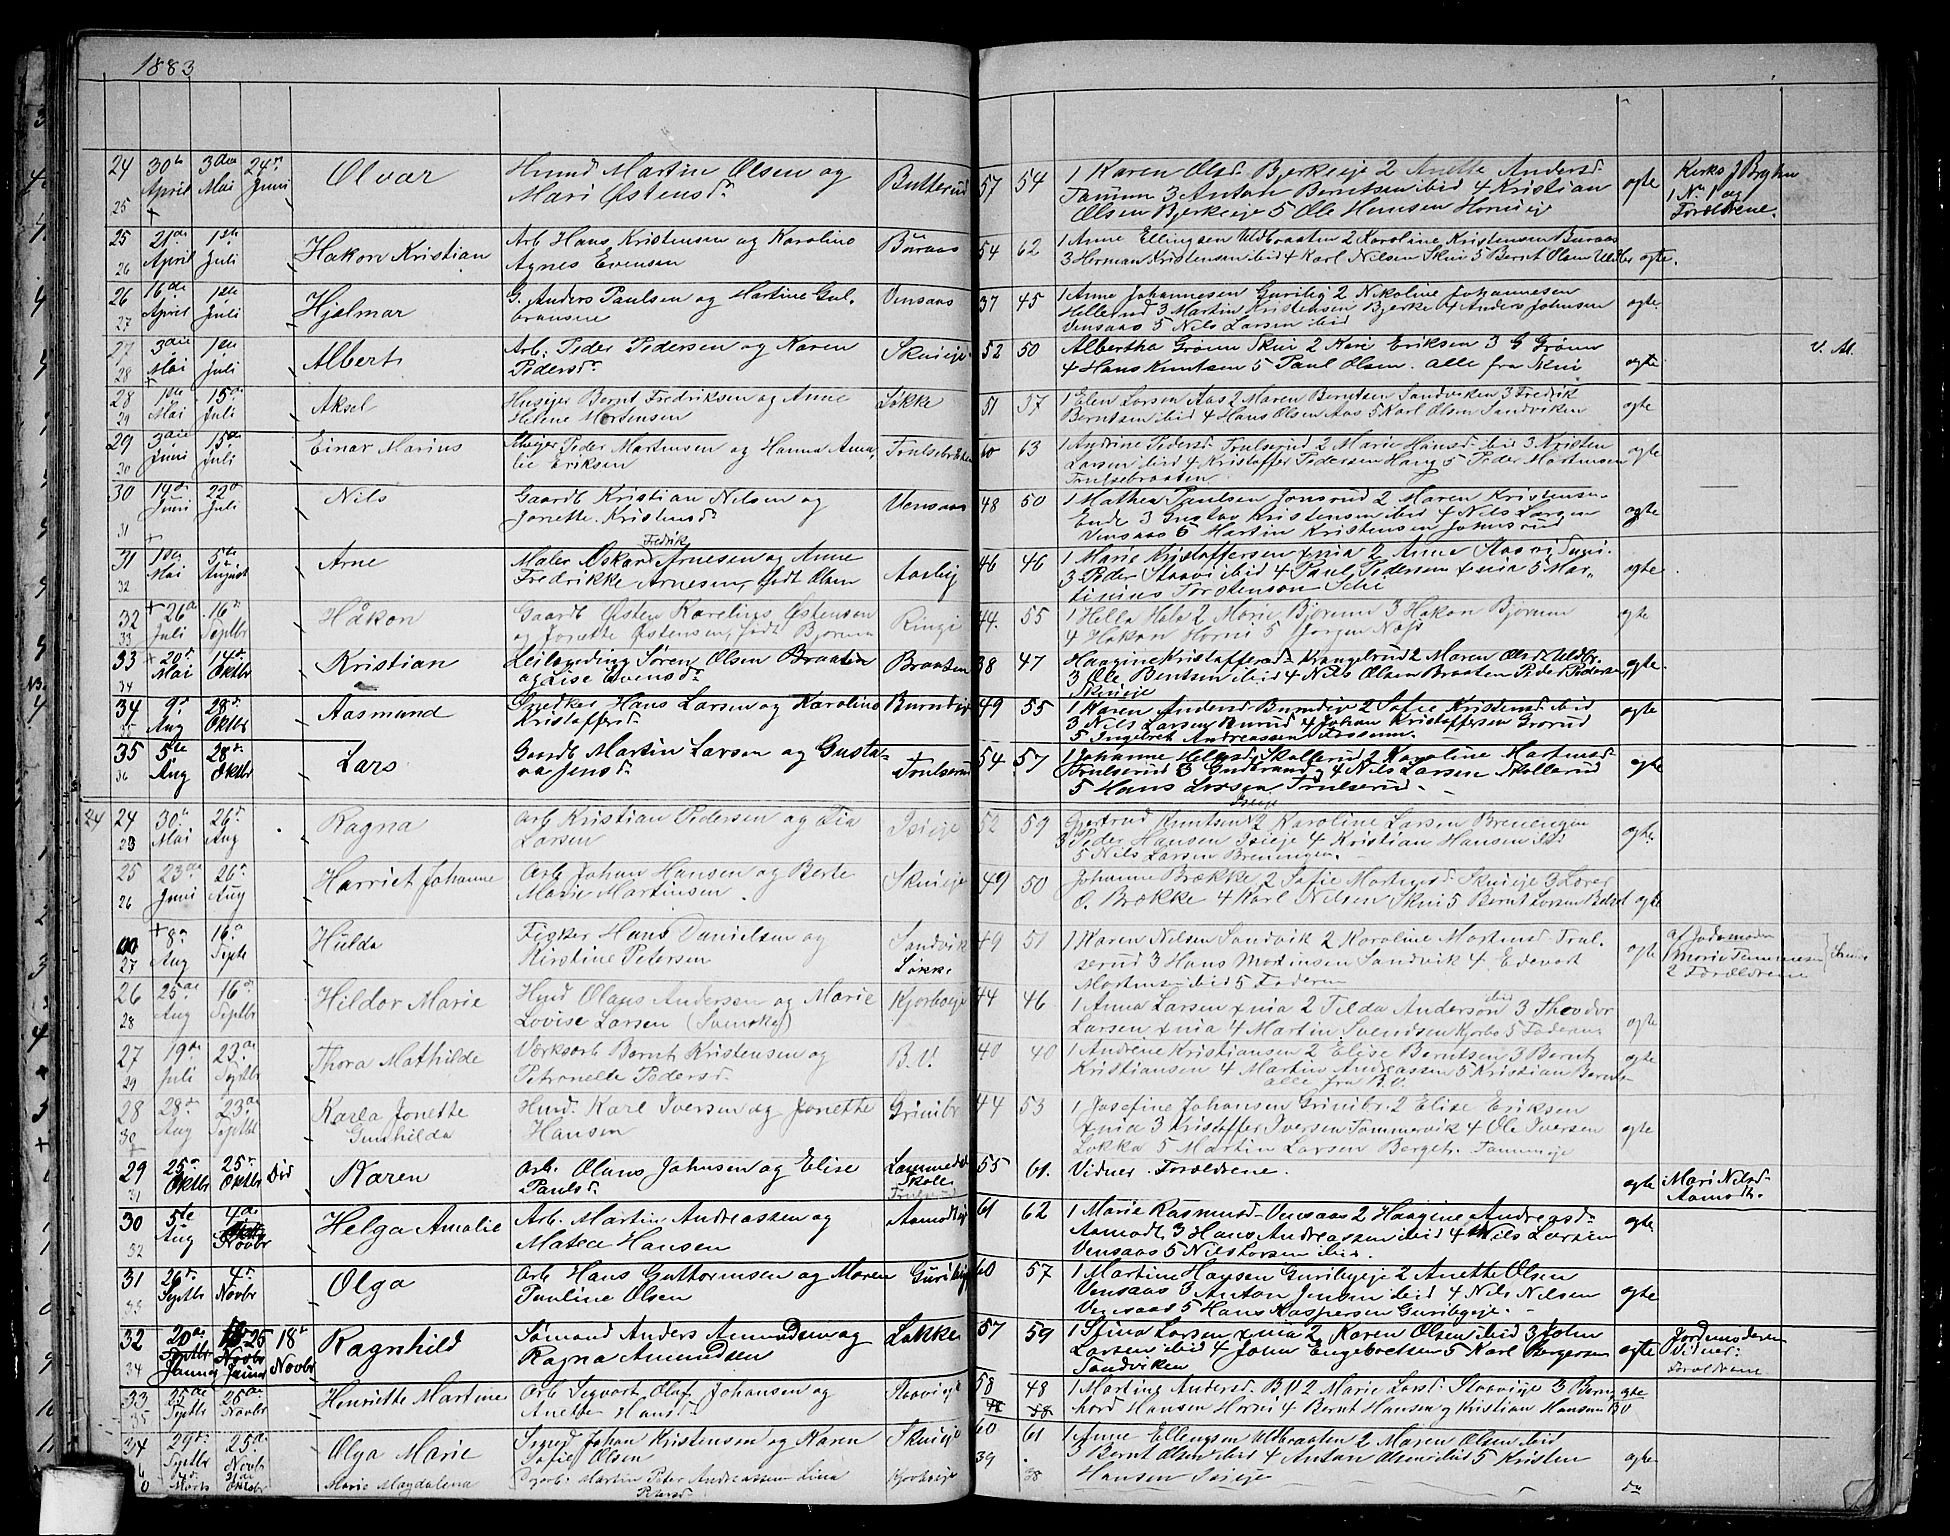 1883
24 30te April 3die Mai 24de Juni Olvar Hmd Martin Olsen og Butterud 57 54 1 Karen Olsd. Bjerkeeje 2 Anette Andersd. ægte
25 Mari Østensd. Tanum 3 Anton Berntsen ibid 4 Kristian 1 No 1 og
Olsen Bjerkeeje 5 Ole Hansen Horneje Forældrene.
25 21de April 1ste Juli Hakon Kristian Arb. Hans Kristensen og Karoline Buraas 54 62 1 Anne Ellingsen Uldbraaten 2 Karoline Kristensen Buraas
26 Agnes Evensen 3 Herman Kristensen ibid 4 Karl Nilsen Skui 5 Bernt Olsen Uldbr ægte.
26 16de April 1ste Juli Hjalmar G. Anders Paulsen og Martine Gul- Vensaas 37 45 1 Anne Johannesen Guriby 2 Nikoline Johannesen ægte.
27 bransen Hellerud 3 Martin Kristensen Bjerke 4 Anders Johnsen
Vensaas 5 Nils Larsen ibid
27 3die Mai 1ste Juli Albert Arb. Peder Pedersen og Karen Skuieje 52 50 Albertha Grønn Skui 2 Kari Eriksen 3 G Grønn ægte V. A.
28 Pedersd. 4 Hans Knutsen 5 Paul Olsen. alle fra Skui
28 1ste Mai 15de Juli Aksel Husejer Bernt Fredriksen og Anne Løkke 51 57 1 Elen Larsen Aas 2 Maren Berntsen Sandviken 3 Fredrik ægte
29 Helene Mortensen Berntsen ibid 4 Hans Olsen Aas 5 Karl Olsen Sandviken
29 3die Juni 15de Juli Einar Marius Peder Martinsen og Hanna Ama- Trulsebraaten 60 63 1 Andrine Pedersd. Trulserud 2 Marie Hansd. ibid 3 Kristen ægte
30 lie Eriksen Larsen ibid 4 Kristoffer Pedersen Haug 5 Peder Martinsen
Trulsebraaten
30 14de Juni 22de Juli Nils Gaardb Kristian Nilsen og Vensaas 48 50 1 Mathea Paulsen Jonsrud 2 Maren Kristensen ægte
31 Jonette Kristensd. Ende 3 Gustav Kristensen ibid 4 Nils Larsen
Vensaas 5 Martin Kristensen Johnsrud
31 1ste Mai 5te August Arne Maler Oskar Fredrik Arnesen og Anne Aasby 46 46 1 Marie Kristoffersen xnia 2 Anne Staavi Tani ægte
32 Fredrikke Arnesen, født Olsen 3 Peder Staavi ibid 4 Paul Pedersen xnia 5 Mar-
tinius Torstenson
32 26de Juli 16de Septbr Håkon Gaardb Østen Karelius Østensen Ringi 44. 55 1 Hella Hals 2 Marie Bjørum 3 Hakon Bjørum ægte
33 og Jonette Østensen, født Bjørum 4 Hakon Horni 5 Jørgen Næss
33 20de Mai 14de Oktbr Kristian Leilænding Søren Olsen Braaten Braaten 38 47 Haagine Kristoffersd. Krangelrud 2 Maren Olsd Uldbr. ægte.
34 og Lise Evensd. 3 Ole Berntsen ibid 4 Nils Olsen Braaten Peder Pedersen
Skuieje
34 9de Aug 28de Oktbr Aasmund Hans Larsen og Karoline 49 55 1 Karen Andersd. 2 Sofie Kristensd. ibid ægte
35 Kristoffersd. 3 Nils Larsen Burud 4 Johan Kristoffersen Grorud
5 Ingebret Andreassen Fossum.
35 5te Aug 28de Oktbr Lars Gaardb Martin Larsen og Gusta- Trulserud 54 57 1 Johanne Helmsd. Skollerud 2 Karoline Martinsd. ægte
36 va Jensd. Trulserud 3 Gudbrand og 4 Nils Larsen Skollerud
5 Hans Larsen Trulserud.
24 24 30te Mai 26de Aug Ragna Arb Kristian Pedersen og Lia Isieje 52 59 Gertrud Knutsen Isieje 2 Karoline Larsen Breningen ægte.
23 Larsen 3 Peder Hansen Isieje 4 Kristian Hansen
5 Nils Larsen Breningen.
25 23de Juni 26de Aug Harriet Johanne Arb Johan Hansen og Berte Skuieje 49 50 Johanne Brække 2 Sofie Martinsd. Skuieje 3 Lærer
26 Marie Martinsen O. Brække 4 Karl Nilsen Skui 5 Bernt Larsen ægte
8de Aug 16de Septb Hulda Fisker Hans Danielsen og Sandvik 49 51 1 Karen Nilsen Sandvik 2 Karoline Martinsd. Trul- ægte af Jordemoder
27 Kirstine Petersen Løkke serud 3 Hans Martinsen Sandvik 4 Edevart 1 Marie
Martinsen ibid 5 Faderen 2 Forældrene
26 25de Aug 16de Septbr Hildor Marie Hmd Olaus Andersen og Marie Kjorboeje 44 46 1 Anna Larsen xnia 2 Tilda Andersen ibid 3 Theodor
28 Lovise Larsen (Svenske) Larsen xnia 4 Martin Svendsen Kjorbo 5 Faderen ægte
27 19de Juli 23de Septbr Thora Mathilde Værksarb Bernt Kristensen og B.V. 40 40 1 Andrene Kristiansen 2 Elise Berntsen 3 Bernt ægte
29 Petronelle Pedersd. Kristiansen 4 Martin Andreassen 5 Kristian Bernts-
alle fra B.V.
28 28de Aug 23de Septbr Karla Jonette Hmd. Karl Iversen og Jonette Grinibr 44 53 1 Josefine Johansen Grinibr. 2 Elise Eriksen
30 Gunhilda Hansen xnia 3 Kristoffer Iversen Tommervik 4 Ole Iversen ægte
Løkka 5 Martin Larsen
29 25de Oktbr 25de Oktbr død Karen Arb. Olaus Johnsen og Elise 55 61. Vidner. Forældrene. ægte Mari Nilsd.
31 Paulsd. Aamodt.
30 5te Aug 4de Novbr Helga Amalie Arb. Martin Andreassen og Aamodteje 61 62 1 Marie Rasmusd. Vensaas 2 Haagine Andreasd. ægte
32 Matea Hansen Aamodt 3 Hans Andreassen ibid 4 Nils Larsen
Vensaas 5 Nils Larsen ibid.
31 26de Septbr 4de Novbr Olga Arb Hans Guttormsen og Maren Guribyeje 60 57 1 Martine Hansen Guribyeje 2 Anette Olsen ægte
33 Pauline Olsen Vensaas 3 Anton Jensen ibid 4 Nils Nilsen
Vensaas 5 Hans Kaspersen Guribyeje.
32 20de Septbr 25 Novbr 18de Novbr Ragnhild Sømand Anders Amundsen og Løkke 57 59 1 Stina Larsen xnia 2 Karen Olsen ibid 3 John ægte Jordemoderen
34 Ragna Amundsen Larsen ibid 4 John Engebretsen 5 Karl Børgersen Vidner:
Sandviken Forældrene
33 25de Septbr 25de Novbr Henriette Martine Arb Sigvart Olaf Johansen og Staavieje 58 48 1 Martine Andersd. BV 2 Marie Larsd. Staavieje 3 Bern- ægte
35 Anette Hansd. 48 58 hard Hansen Horni 4 Bernt Hansen og Kristian Hansen BV
34 29de Septbr 25de Novbr Olga Marie Johan Kristensen og Karen Skuieje 60 61 1 Anne Ellingsen Uldbraaten 2 Maren Olsen ibid
Sofie Olsen 39 3 Bernt Olsen ibid 4 Anton Olsen ibid 5 Kristen ægte
Marts Oktbr Marie Magdalena Martin Peter Andreassen Lina Kjorboeje 38 Hansen Isieje
Petersd.